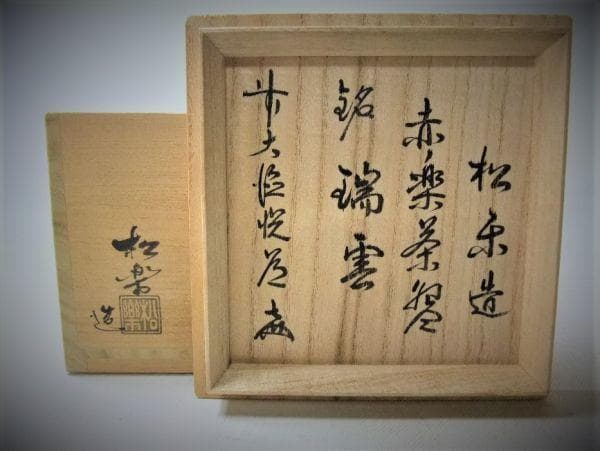 松楽造
赤楽茶盌
銘 瑞雲
前大徳悦道
松楽
造